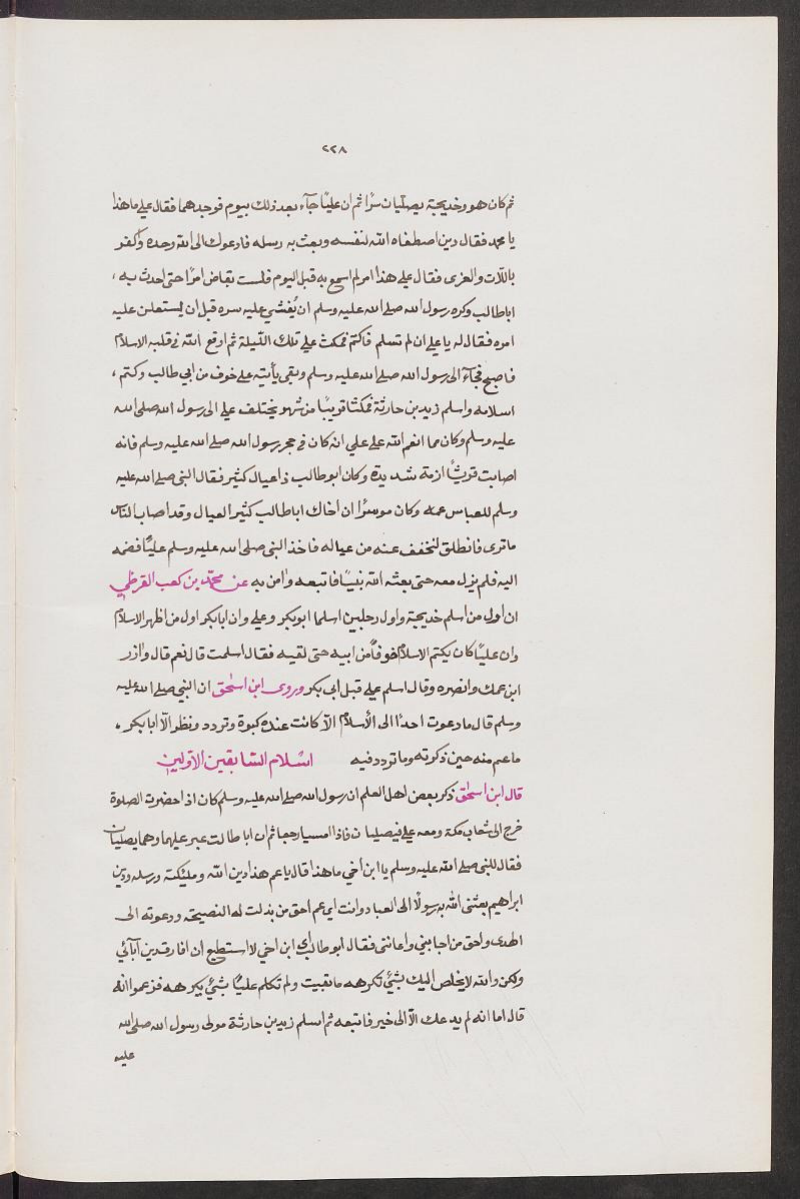 ٢٢٨
ثم كان هو وخديجة يصليان سرًا ثم ان عليًا جآء بعد ذلك بيوم فوجدهما فقال علي ما هذا
يا محمد فقال دين اصطفاه الله لنفسه وبعث به رسله فادعوك الى الله وحده واكفر
باللات والعزى فقال علي هذا امر لم اسمع به قبل اليوم فلست بقاض امرًا حتى احدث به ،
اباطالب وكره رسول الله صلى الله عليه وسلم ان يُفشي عليه سره قبل ان يستعلن عليه
امره فقال له يا علي ان لم تسلم فاكتم فمكث علي تلك الليلة ثم اوقع الله في قلبه الاسلام
فاصبح فجآء الى رسول الله صلى الله عليه وسلم وبقى يأتيه على خوف من ابي طالب وكتم ،
اسلامه واسلم زيد بن حارثة فمكثا قريبًا من شهر يختلف علي الى رسول الله صلى الله
عليه وسلم وكان مما انعم الله على علي انه كان في حجر رسول الله صلى الله عليه وسلم فانه
اصابت قريشًا ازمة شديدة وكان ابو طالب ذا عيال كثير فقال النبى صلى الله عليه
وسلم للعباس عمه وكان موسرًا ان اخاك اباطالب كثير العيال وقد اصاب الناس
ما ترى فانطلق لنخفف عنه من عياله فاخذ النبى صلى الله عليه وسلم عليًا فضمه
اليه فلم يزل معه حتى بعثه الله نبيًا فاتبعه وامن به عن محمد بن كعب القرظي
ان اول من اسلم خديجة واول رجلين اسلما ابو بكر وعلي وان ابابكر اول من اظهر الاسلام
وان عليًا كان يكتم الاسلام خوفًا من ابيه حتى لقيه فقال اسلمت قال نعم قال وازر
ابن عمك وانصره وقال اسلم علي قبل ابي بكر وروى ابن اسحق ان النبي صلى الله عليه
وسلم قال ما دعوت احدًا الى الأسلام الا كانت عنده كبوة وتردد ونظر الا ابا بكر ،
ما عم منه حين ذكرته وما تردد فيه اسلام السابقين الاولين
قال ابن اسحق ذكر بعض اهل العلم ان رسول الله صلى الله عليه وسلم كان اذا حضرت الصلوة
خرج الى شعاب مكة ومعه علي فيصليان فاذا امسيا رجعا ثم ان ابا طالت عبر عليهما وهما يصليان
فقال للنبى صلى الله عليه وسلم يا ابن اخي ما هذا قال يا عم هذا دين الله وملئكته ورسله ودين
ابراهيم بعثنى الله به رسولًا الى العباد وانت اي عم احق من بذلت له النصيحة ودعوته الى
الهدى واحق من اجابني واعاننى فقال ابو طالب اي ابن اخي لا استطيع ان افارق دين آبآئي
ولكن والله لا يخلص اليك بشئ تكرهه ما بقيت ولم تكلم عليًا بشئ يكرهه فزعموا انه
قال اما انه لم يدعك الّا الى خير فاتبعه ثم اسلم زيد بن حارثة مولى رسول الله صلى الله
عليه